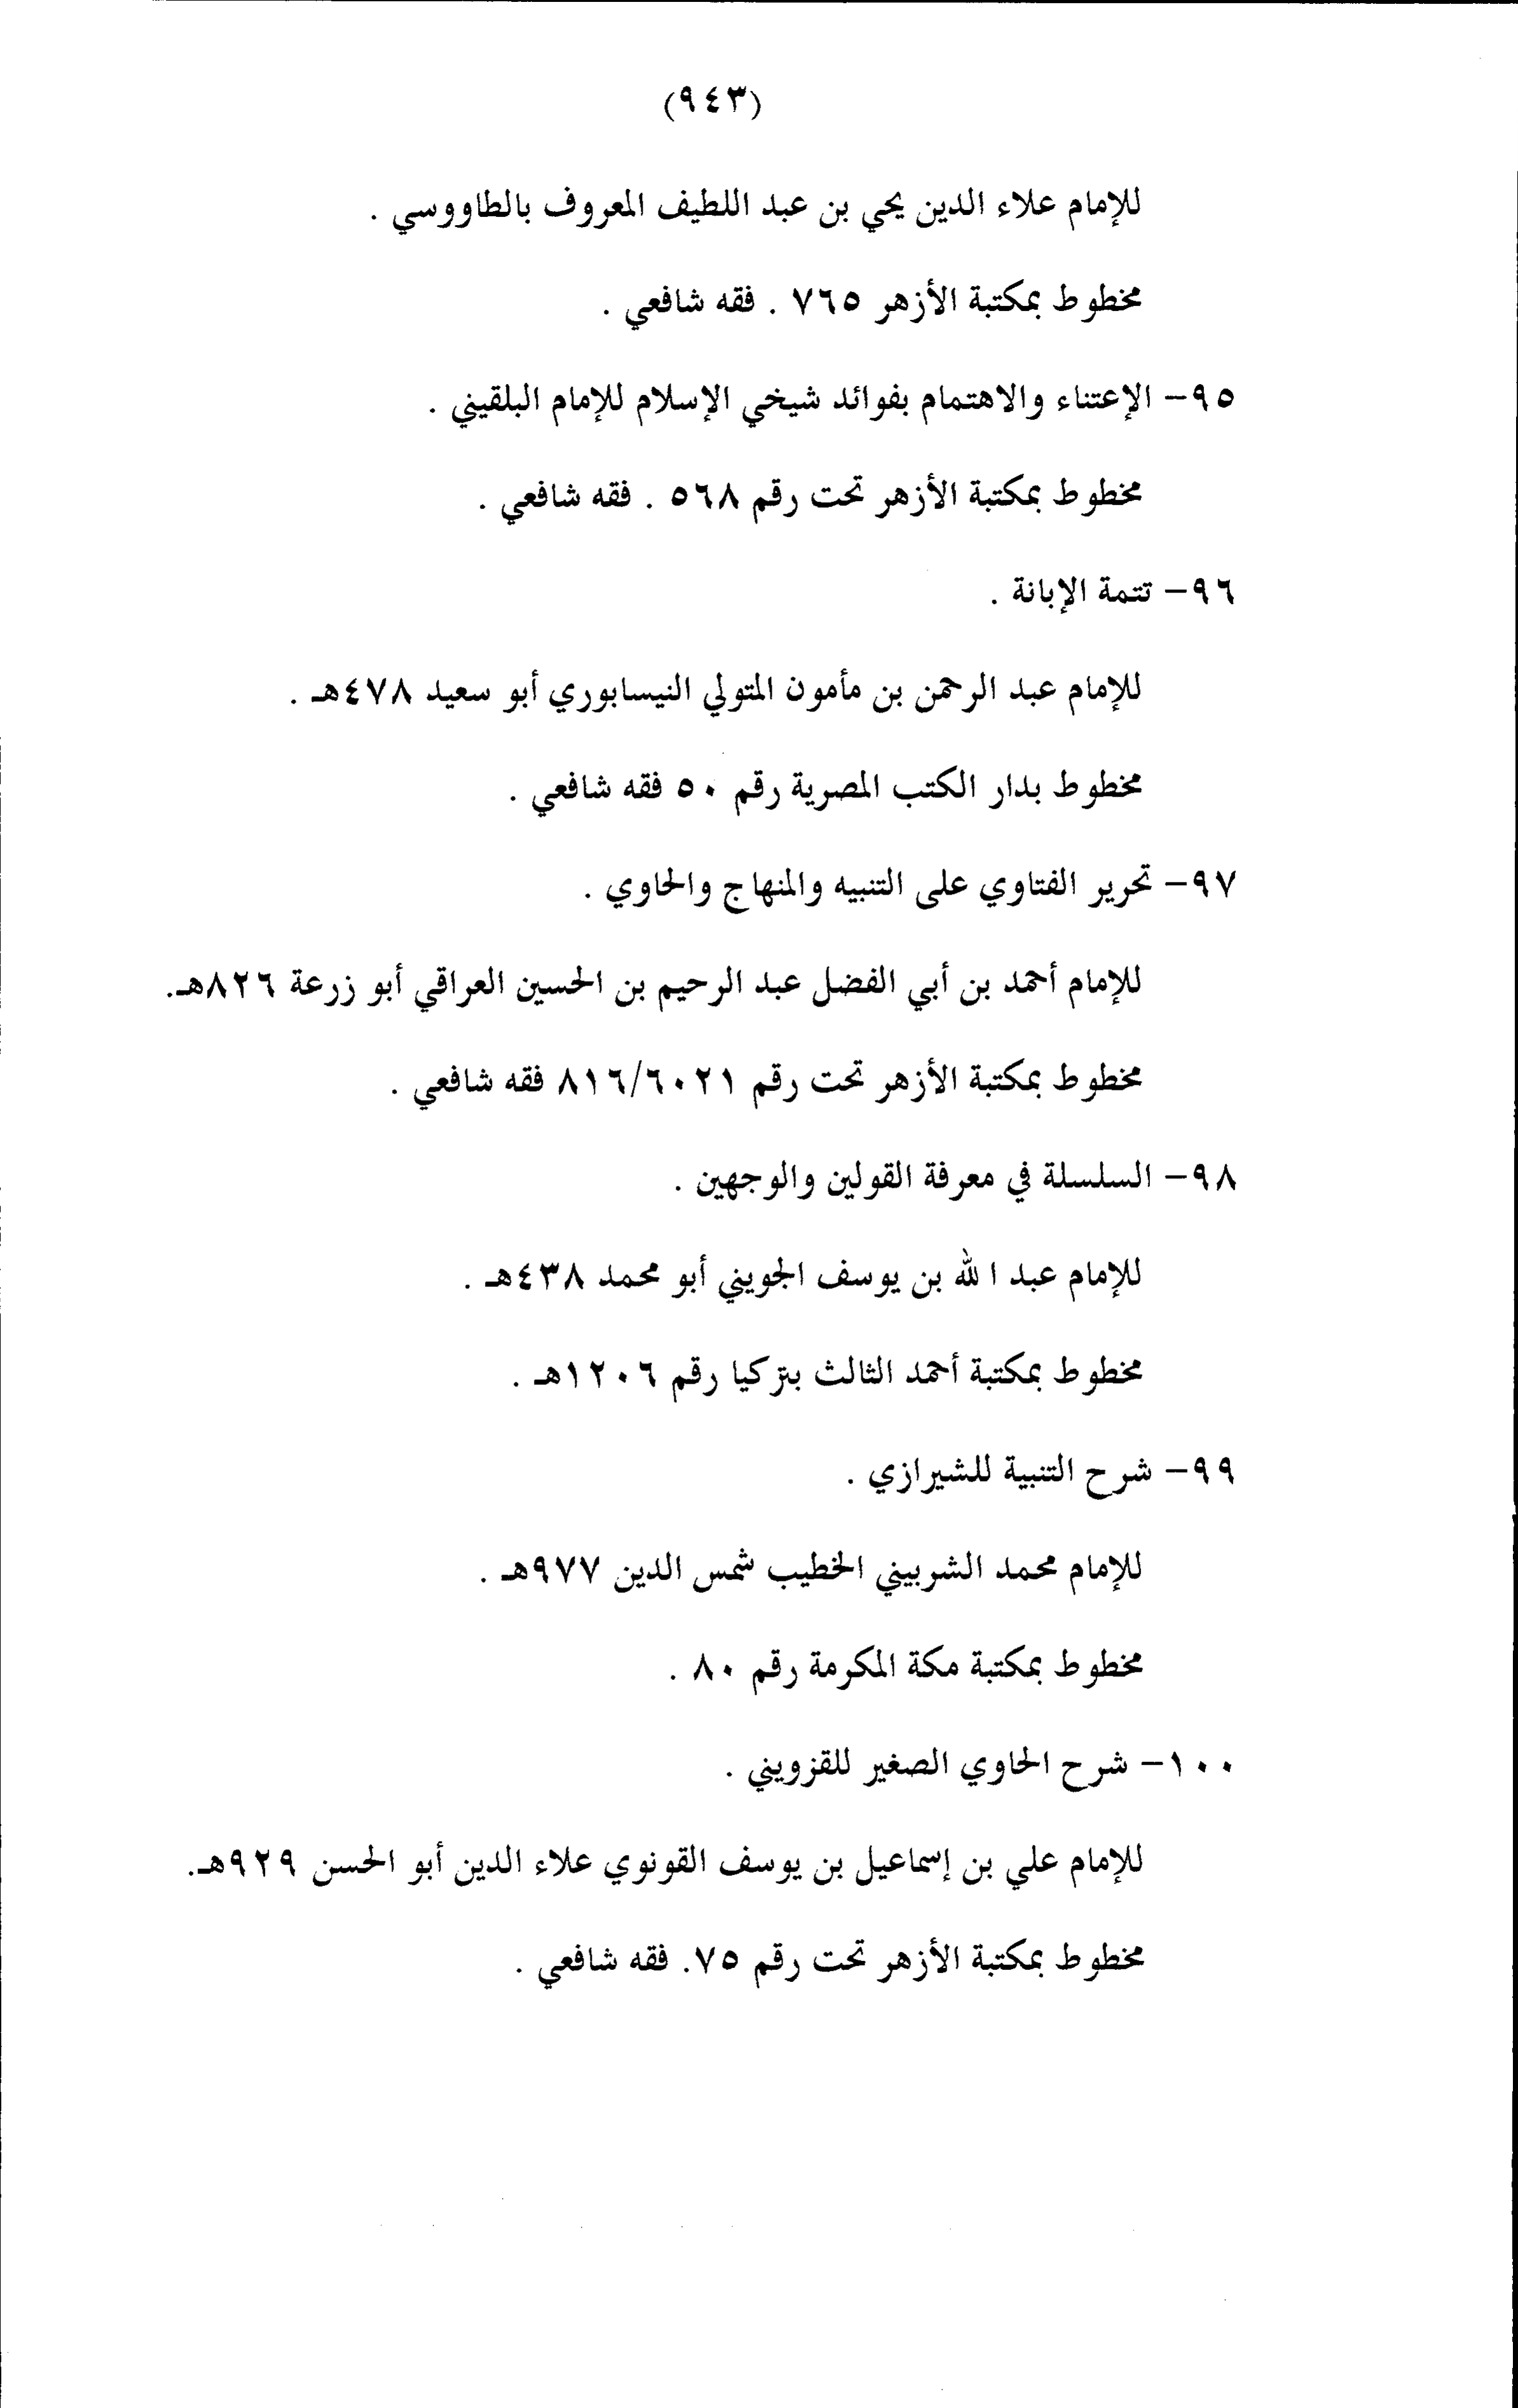 (٩٤٣)
للإمام علاء الدين يحي بن عبد اللطيف المعروف بالطاووسي .
مخطوط بمكتبة الأزهر ٧٦٥ . فقه شافعي .
٩٥- الإعتناء والاهتمام بفوائد شيخي الإسلام للإمام البلقيني .
مخطوط بمكتبة الأزهر تحت رقم ٥٦٨ . فقه شافعي .
٩٦- تتمة الإبانة .
للإمام عبد الرحمن بن مأمون المتولي النيسابوري أبو سعيد ٤٧٨هـ .
مخطوط بدار الكتب المصرية رقم ٥٠ فقه شافعي .
٩٧- تحرير الفتاوي على التنبيه والمنهاج والحاوي .
للإمام أحمد بن أبي الفضل عبد الرحيم بن الحسين العراقي أبو زرعة ٨٢٦هـ.
مخطوط بمكتبة الأزهر تحت رقم ٨١٦/٦٠٢١ فقه شافعي .
٩٨- السلسلة في معرفة القولين والوجهين .
للإمام عبد الله بن يوسف الجويني أبو محمد ٤٣٨هـ .
مخطوط بمكتبة أحمد الثالث بتركيا رقم ١٢٠٦هـ .
٩٩- شرح التنبية للشيرازي .
للإمام محمد الشربيني الخطيب شمس الدين ٩٧٧هـ .
مخطوط بمكتبة مكة المكرمة رقم ٨٠ .
١٠٠- شرح الحاوي الصغير للقزويني .
للإمام علي بن إسماعيل بن يوسف القونوي علاء الدين أبو الحسن ٩٢٩هـ.
مخطوط بمكتبة الأزهر تحت رقم ٧٥. فقه شافعي .